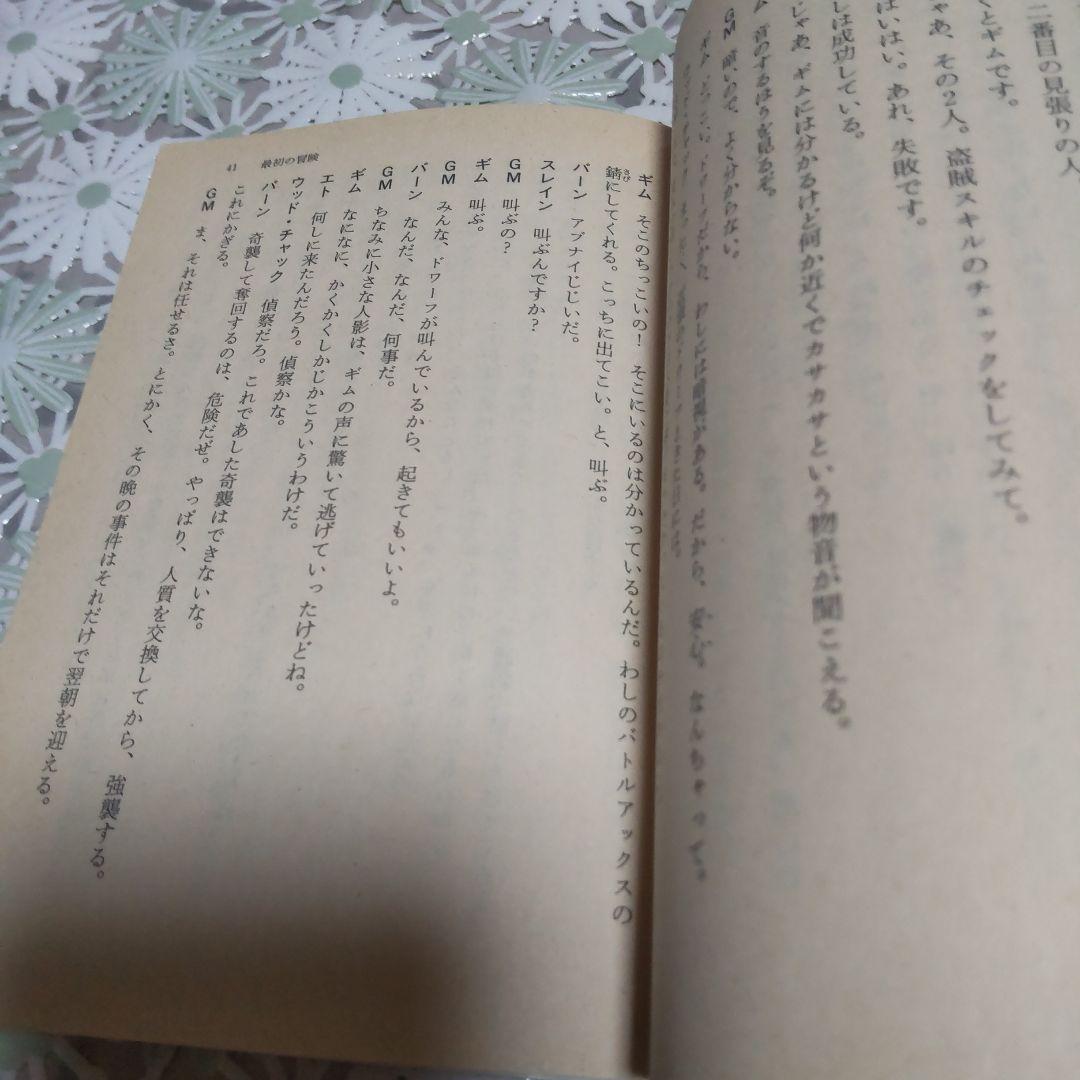 二番目の見張りの人
くとギムです。
じゃあ、その2人。盗賊スキルのチェックをしてみて。
はいはい。あれ、失敗です。
しは成功している。
じゃあ、ギムには分かるけど何か近くでカサカサという物音が聞こえる。
音のするほうを見るぞ。
GM 暗いので、よく分からない。
わしには暗視がある。だから、なんちゃって。
ギム そこのちっこいの! そこにいるのは分かっているんだ。わしのバトルアックスの
錆にしてくれる。こっちに出てこい。と、叫ぶ。
バーン アブナイじじいだ。
スレイン 叫ぶんですか?
GM 叫ぶの?
ギム 叫ぶ。
GM みんな、ドワーフが叫んでいるから、起きてもいいよ。
バーン なんだ、なんだ、何事だ。
GM ちなみに小さな人影は、ギムの声に驚いて逃げていったけどね。
ギム なになに、かくかくしかじかこういうわけだ。
エト 何しに来たんだろう。偵察かな。
ウッド・チャック 偵察だろ。これであした奇襲はできないな。
バーン 奇襲して奪回するのは、危険だぜ。やっぱり、人質を交換してから、強襲する。
これにかぎる。
GM ま、それは任せるさ。とにかく、その晩の事件はそれだけで翌朝を迎える。
41 最初の冒険